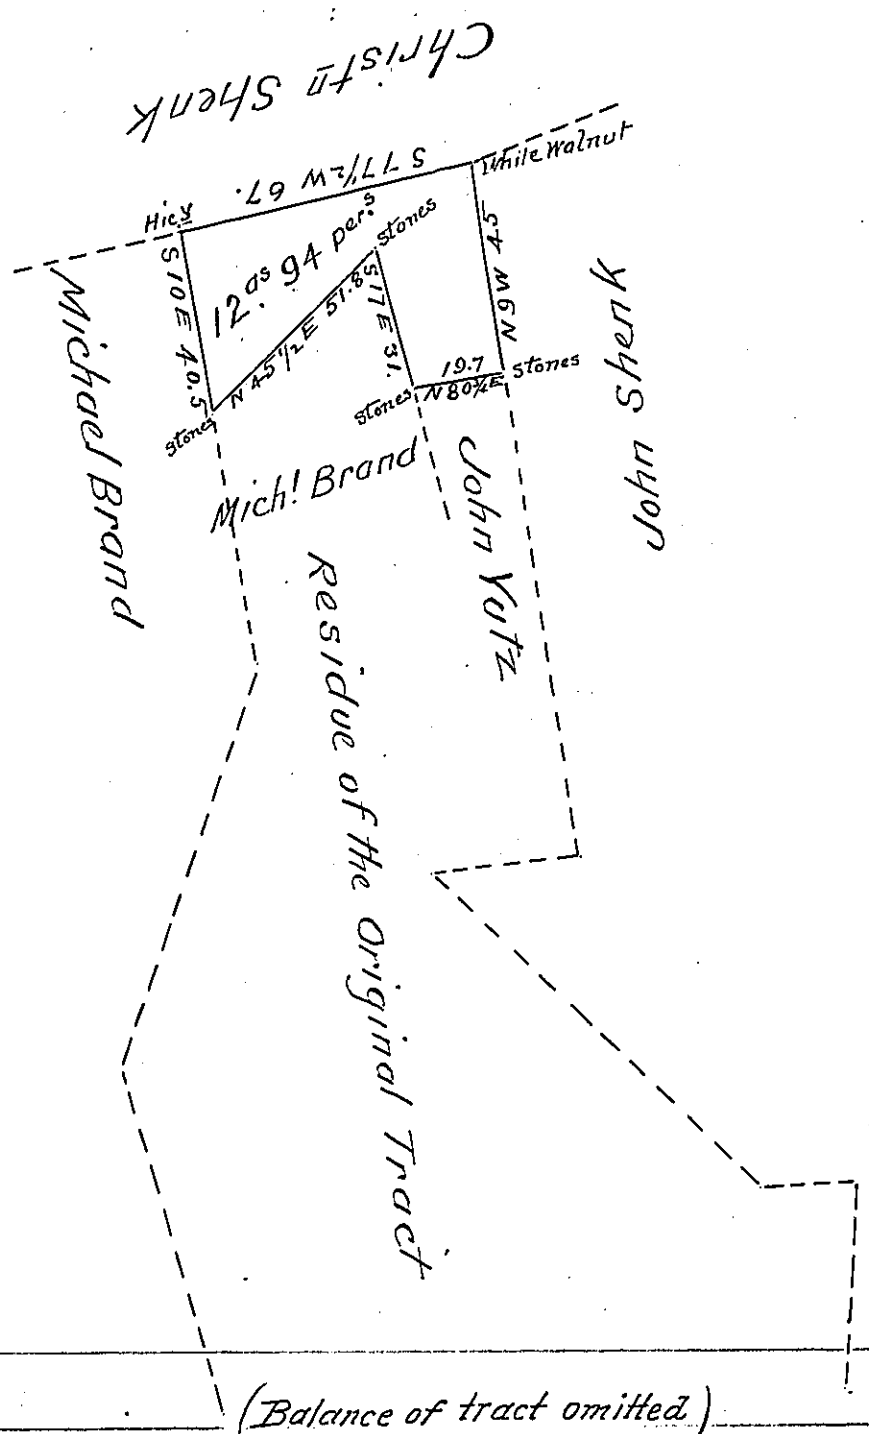 Christn Shenk
S 77 1/2 W 67.
White Walnut
Hicy
12 as 94 pers
Stones
S 10 E 40.5
N 45 1/2 E 51.8
S 17 E 31.
N 9 W 45
19.7
N 80 3/4 E
Stones
Stones
Stones
Michael Brand
Mich! Brand
John Yutz
John Shenk
Residue of the Original Tract
(Balance of tract omitted)